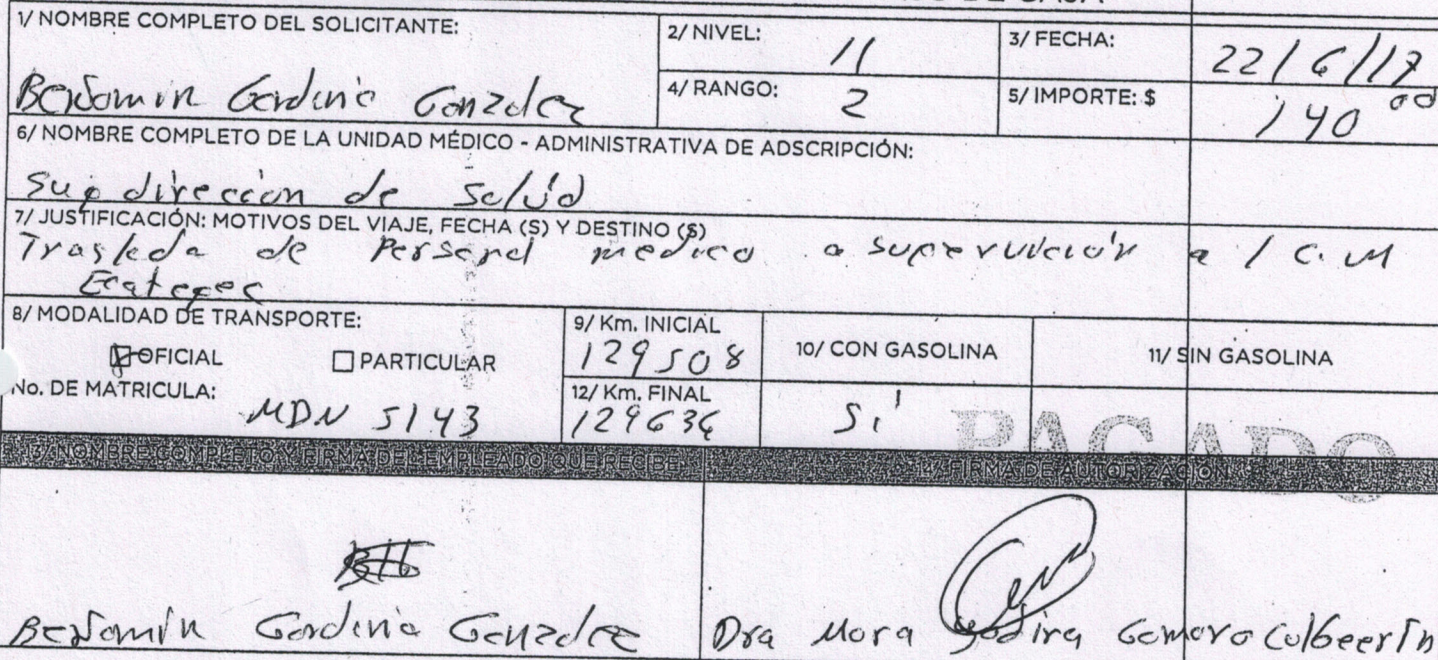 1/ NOMBRE COMPLETO DEL SOLICITANTE:
Benjamin Gardenia Gonzalez
2/ NIVEL: 11
3/ FECHA: 22/6/17
4/ RANGO: 2
5/ IMPORTE: $ 140 00
6/ NOMBRE COMPLETO DE LA UNIDAD MÉDICO - ADMINISTRATIVA DE ADSCRIPCIÓN:
Supdireccion de Salud
7/ JUSTIFICACIÓN: MOTIVOS DEL VIAJE, FECHA (S) Y DESTINO (S)
Traslada de Personal medico a supervición a / C. M
Ecatepec
8/ MODALIDAD DE TRANSPORTE:
OFICIAL
PARTICULAR
No. DE MATRICULA: MDN 5143
9/ Km. INICIAL
129508
10/ CON GASOLINA
11/ SIN GASOLINA
12/ Km. FINAL
129636
Sí
PAGADO
13/ NOMBRE COMPLETO Y FIRMA DEL EMPLEADO QUE RECIBE
14/ FIRMA DE AUTORIZACIÓN
Benjamin Gardenia Gonzalez
Dra Mora Yadira Gamoro